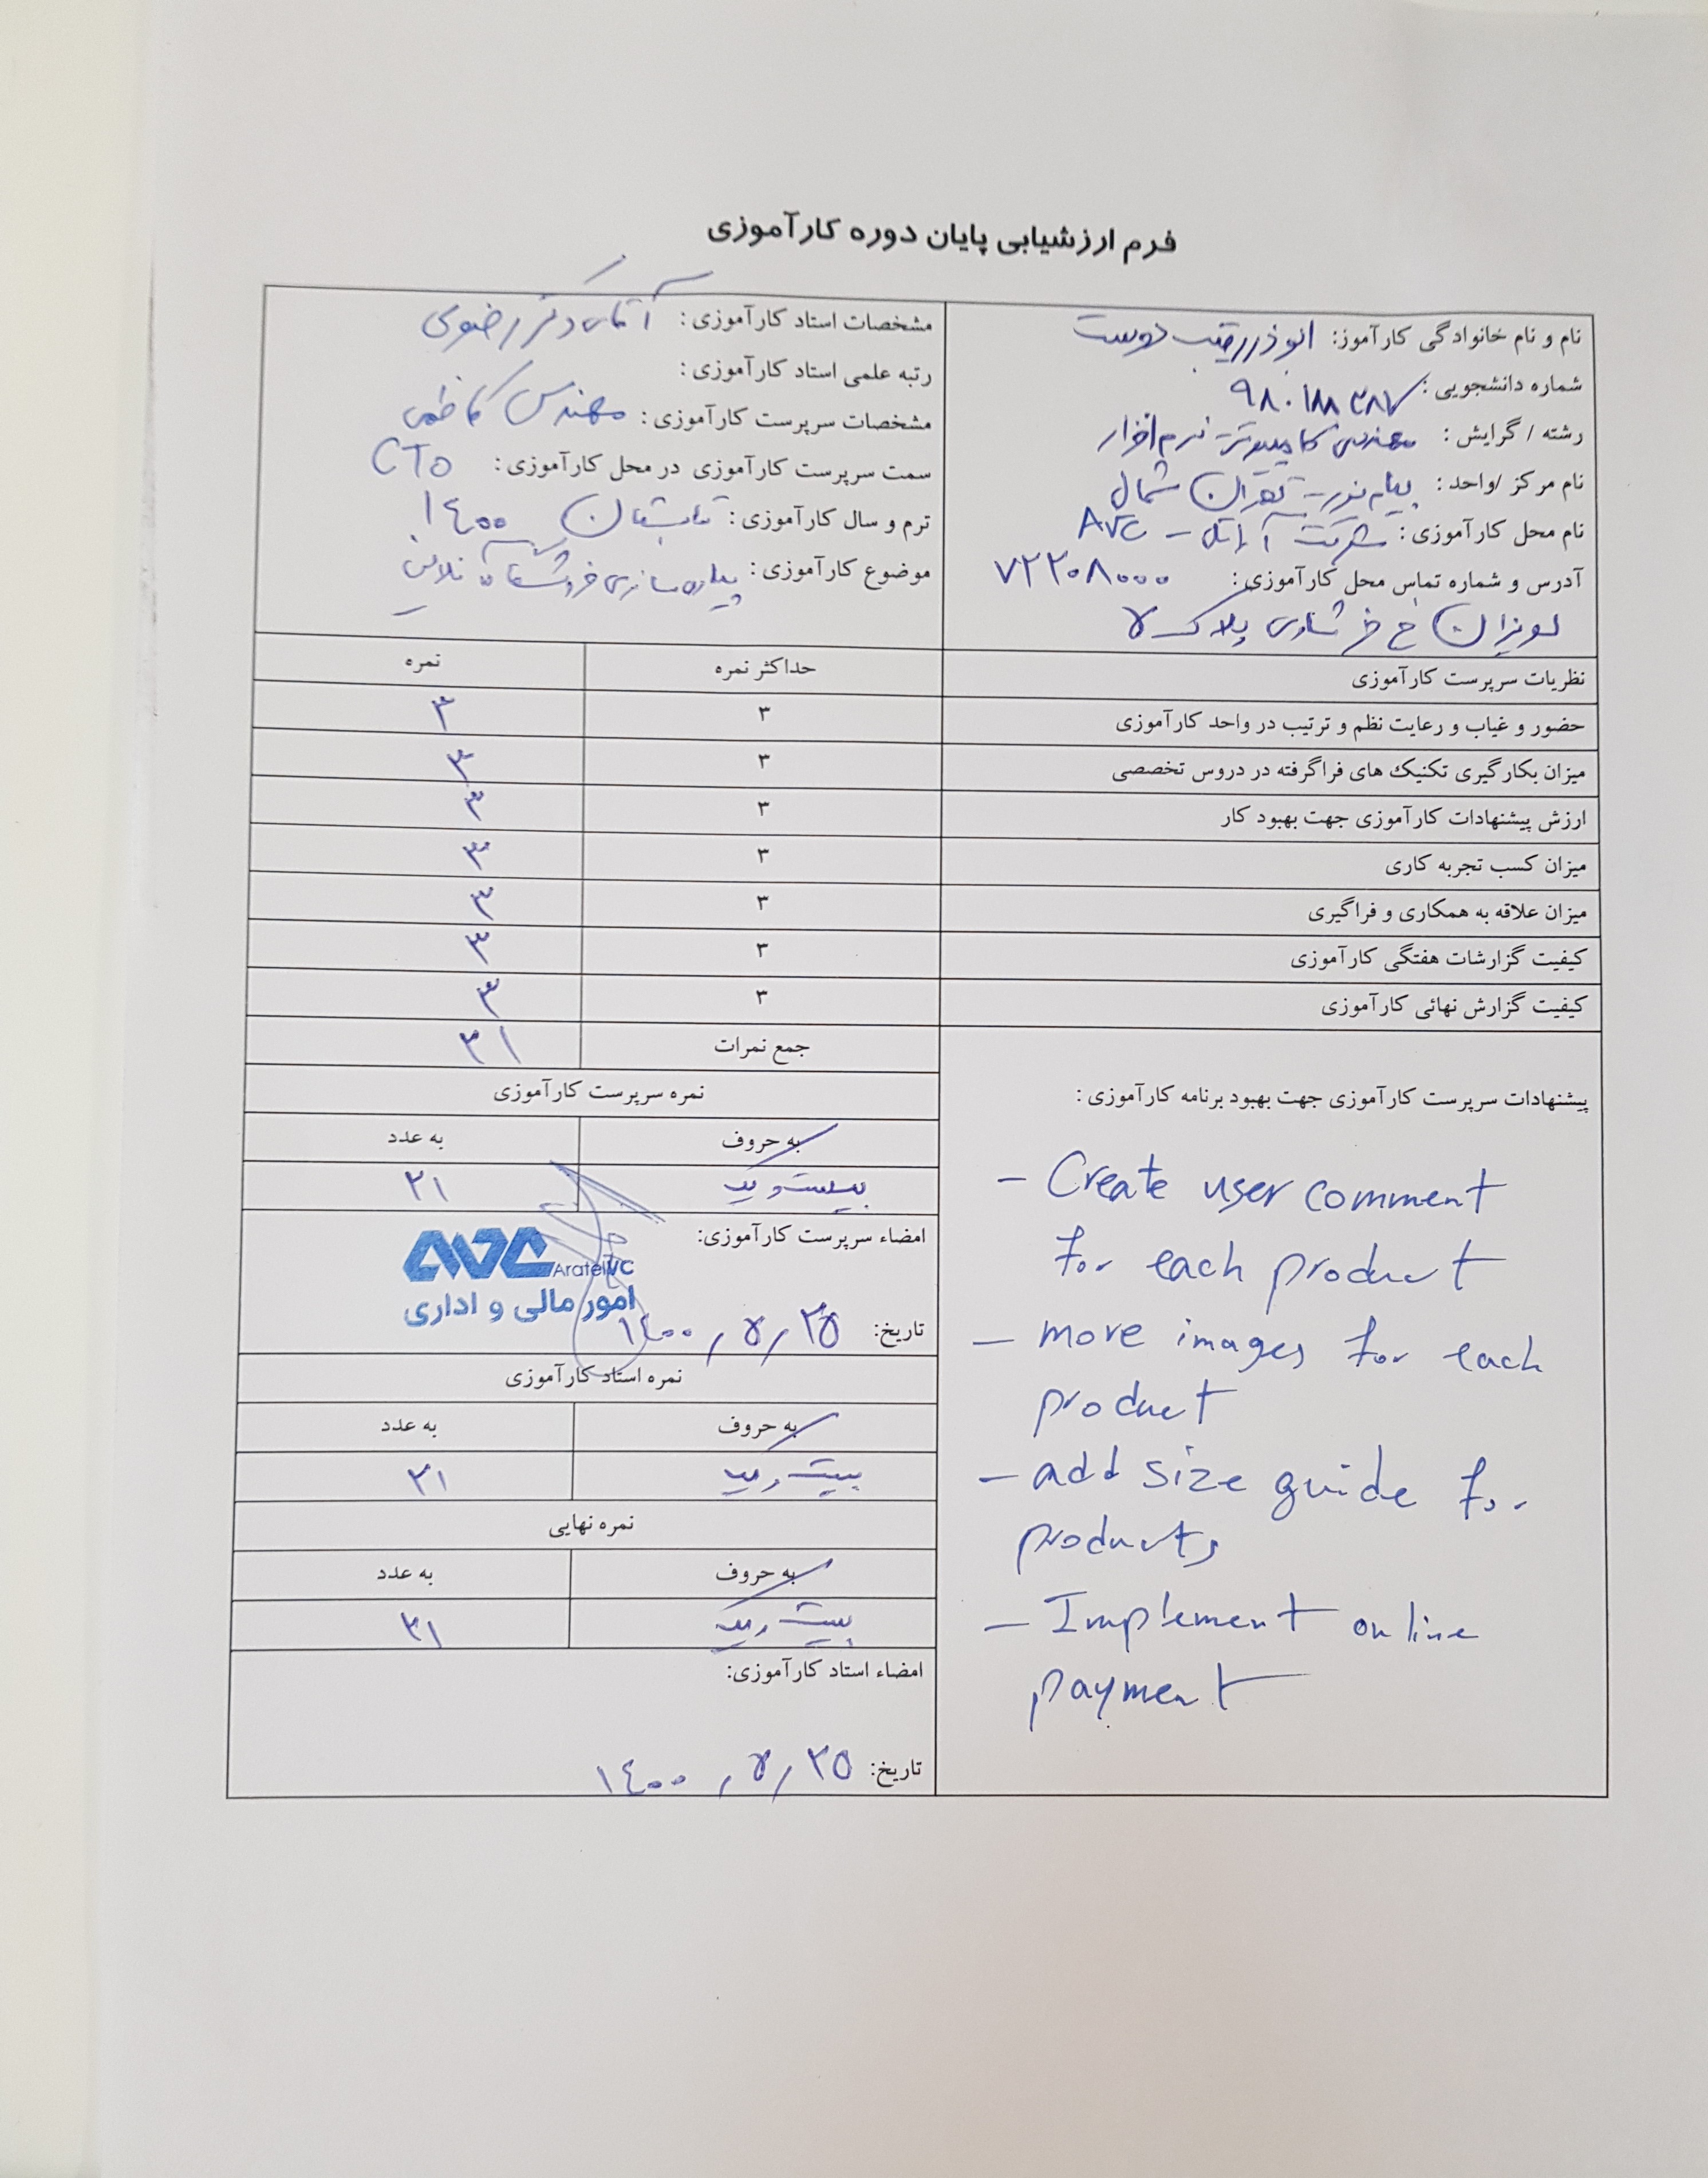 فرم ارزشیابی پایان دوره کارآموزی
نام و نام خانوادگی کارآموز: ابوذر رقیب دوست
شماره دانشجویی: ۹۸۰۱۸۸۳۸۷
رشته / گرایش: مهندسی کامپیوتر نرم افزار
نام مرکز /واحد: پیام نور - تهران شمال
نام محل کارآموزی: شرکت آراتل - AVC
آدرس و شماره تماس محل کارآموزی: ۷۲۲۰۸۰۰۰
لویزان خ پلاک ۵
مشخصات استاد کارآموزی: آقای دکتر رضوی
رتبه علمی استاد کارآموزی:
مشخصات سرپرست کارآموزی: مهندس کاظمی
سمت سرپرست کارآموزی در محل کارآموزی: CTO
ترم و سال کارآموزی: تابستان ۱۴۰۰
موضوع کارآموزی: پیاده سازی فروشگاه آنلاین
نظریات سرپرست کارآموزی حداکثر نمره نمره
حضور و غیاب و رعایت نظم و ترتیب در واحد کارآموزی ۳ ۳
میزان بکارگیری تکنیک های فراگرفته در دروس تخصصی ۳ ۳
ارزش پیشنهادات کارآموزی جهت بهبود کار ۳ ۳
میزان کسب تجربه کاری ۳ ۳
میزان علاقه به همکاری و فراگیری ۳ ۳
کیفیت گزارشات هفتگی کارآموزی ۳ ۳
کیفیت گزارش نهائی کارآموزی ۳ ۳
جمع نمرات ۲۱
پیشنهادات سرپرست کارآموزی جهت بهبود برنامه کارآموزی :
- Create user comment
for each product
- more images for each
product
- add size guide for
products
- Implement online
payment
نمره سرپرست کارآموزی
به حروف به عدد
بیست و یک ۲۱
امضاء سرپرست کارآموزی:
AVC
AratelVC
امور مالی و اداری
تاریخ: ۱۴۰۰/۵/۲۵
نمره استاد کارآموزی
به حروف به عدد
بیست و یک ۲۱
نمره نهایی
به حروف به عدد
بیست و یک ۲۱
امضاء استاد کارآموزی:
تاریخ: ۱۴۰۰/۵/۲۵